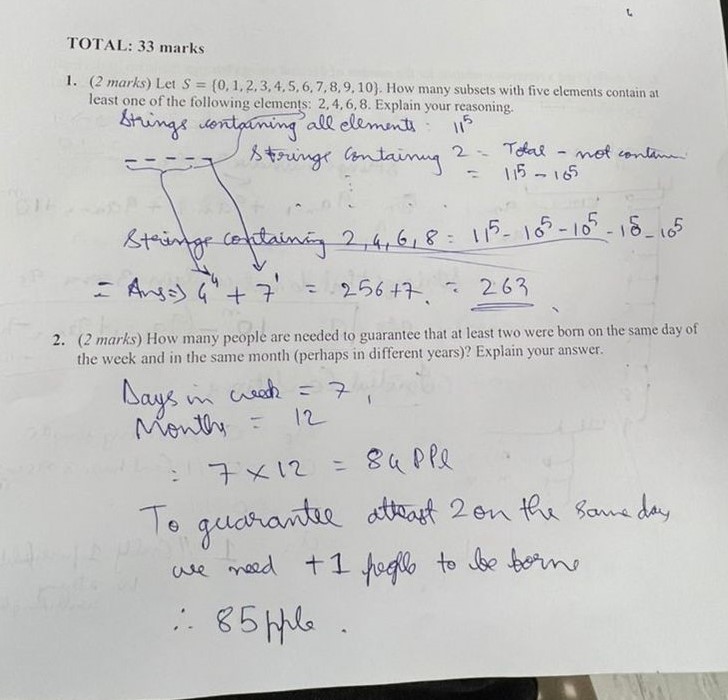 TOTAL: 33 marks
1. (2 marks) Let S = {0, 1, 2, 3, 4, 5, 6, 7, 8, 9, 10}. How many subsets with five elements contain at
least one of the following elements: 2, 4, 6, 8. Explain your reasoning.
Strings containing all elements : 11⁵
Strings containing 2 = Total - not contain
= 11⁵ - 10⁵
Strings containing 2, 4, 6, 8 = 11⁵ - 10⁵ - 10⁵ - 10⁵ - 10⁵
= Ans => 4⁴ + 7¹ = 256 + 7 = 263
2. (2 marks) How many people are needed to guarantee that at least two were born on the same day of
the week and in the same month (perhaps in different years)? Explain your answer.
Days in week = 7,
Months = 12
: 7 × 12 = 84 PPl
To guarantee atleast 2 on the same day
we need +1 people to be borne
∴ 85 pple .